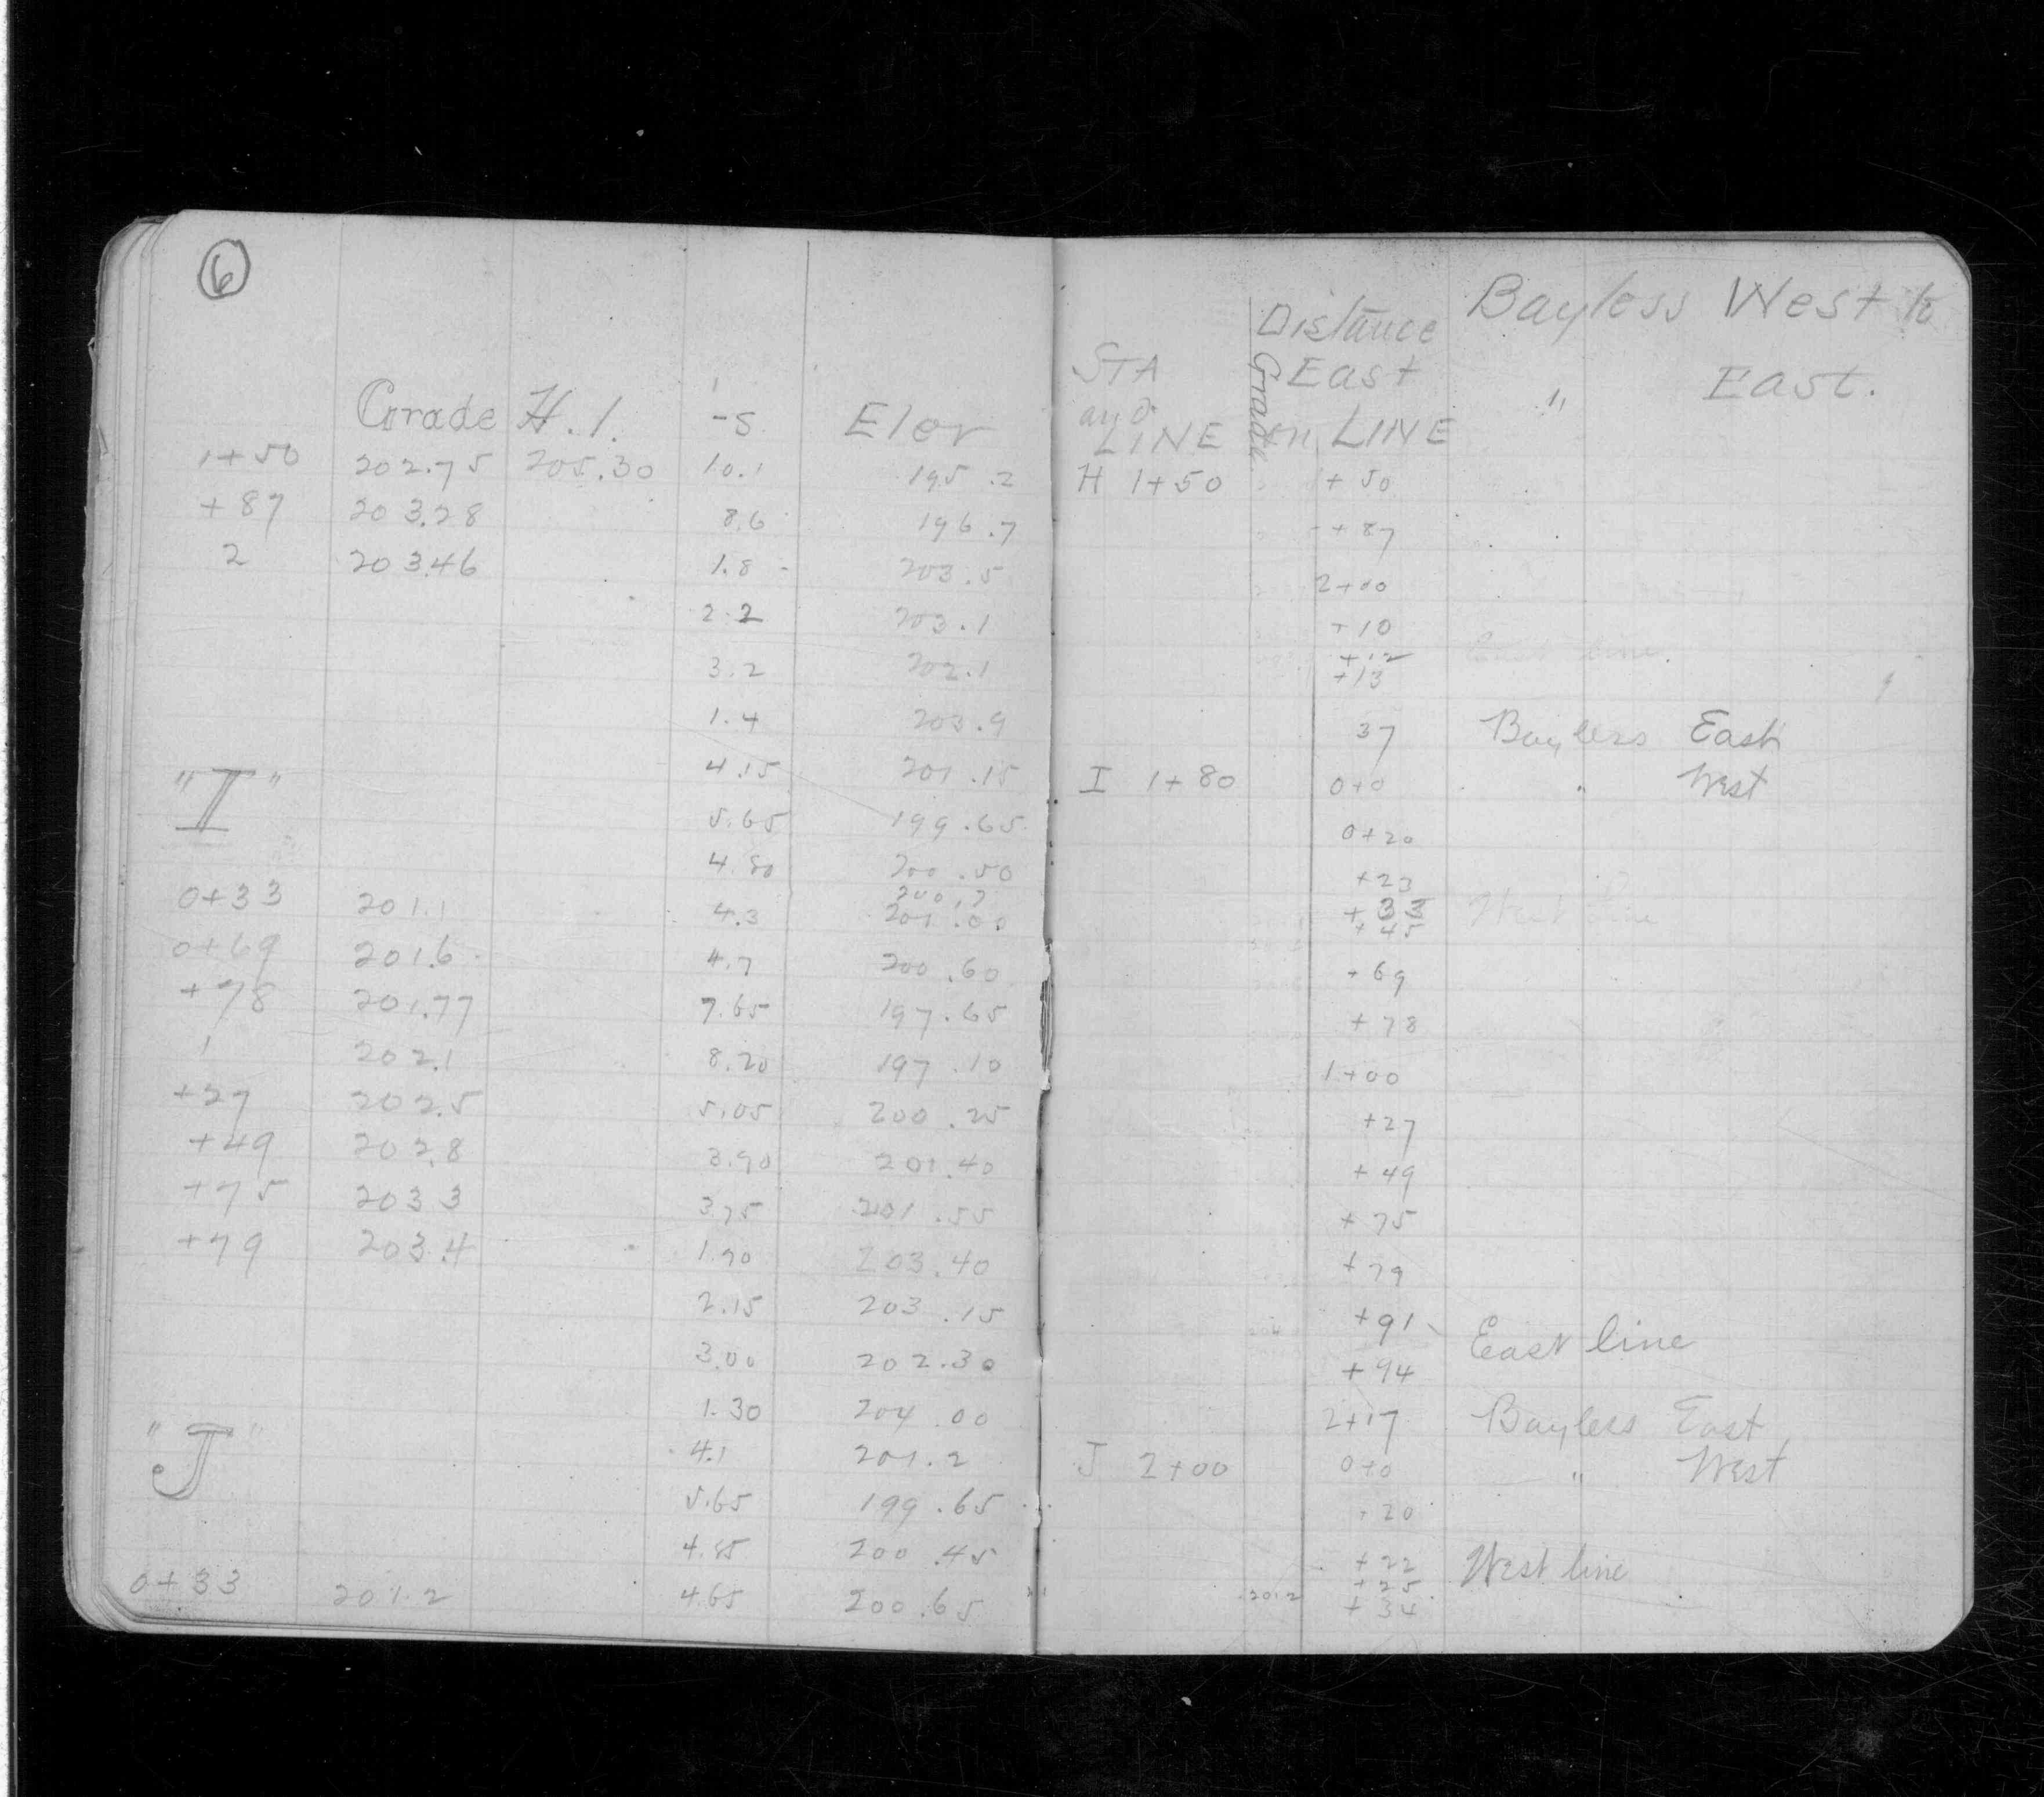 6
Grade H.I. -S Elev
1+50 202.75 205.30 10.1 195.2
+87 203.28 8.6 196.7
2 203.46 1.8 203.5
2.2 203.1
3.2 202.1
1.4 203.9
"I" 4.15 201.15
5.65 199.65
4.80 200.50
200.7
0+33 201.1 4.3 201.00
0+69 201.6 4.7 200.60
+78 201.77 7.65 197.65
1 202.1 8.20 197.10
+27 202.5 5.05 200.25
+49 202.8 3.90 201.40
+75 203 3 3.75 201.55
+79 203.4 1.90 203.40
2.15 203.15
3.00 202.30
1.30 204.00
"J" 4.1 201.2
5.65 199.65
4.85 200.45
0+33 201.2 4.65 200.65
Bayless West to
Distance
STA Grade East " East.
and
LINE on LINE
H 1+50 +50
+87
2+00
+10
+12 East line.
+13
37 Bayless East
I 1+80 0+0 " West
0+20
+23
+33 West line
+45
+69
+78
1+00
+27
+49
+75
+79
+91 East line
+94
2+17 Bayless East
J 2+00 0+0 " West
+20
+22 West line
+25
201.2 +34